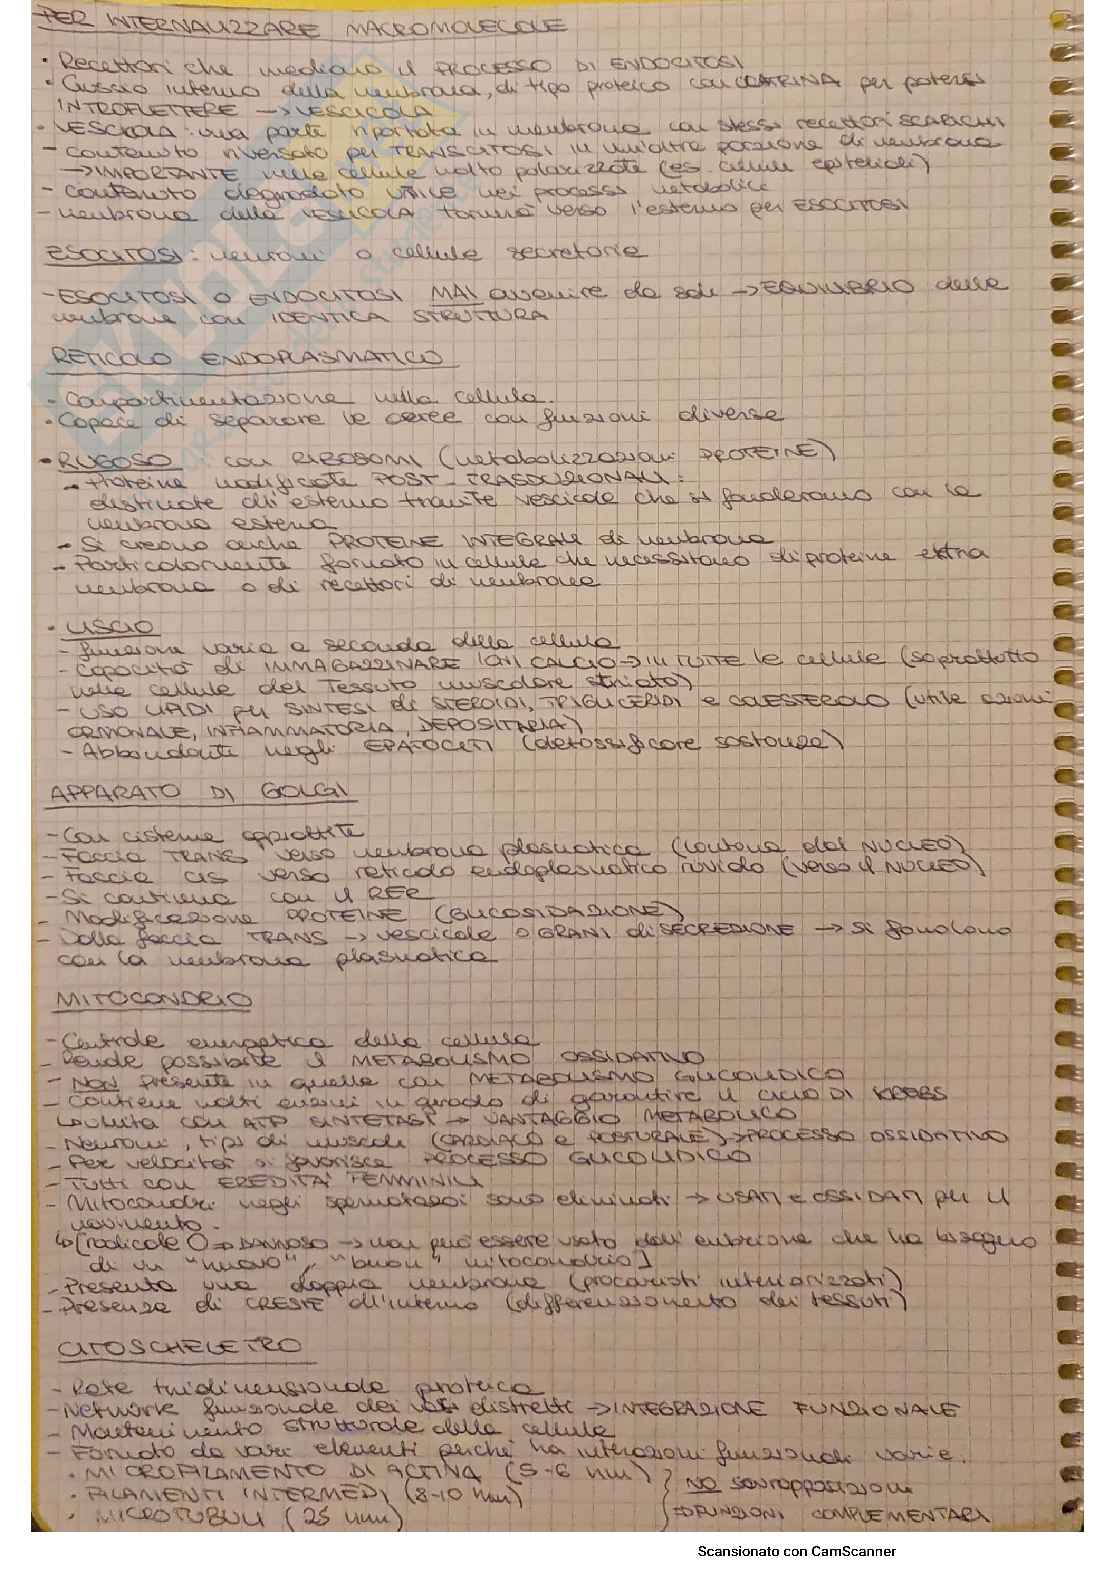 PER INTERNALIZZARE MACROMOLECOLE
• Recettori che mediano il PROCESSO DI ENDOCITOSI
• Guscio interno della membrana, di tipo proteico con CLATRINA per potersi
INTROFLETTERE → VESCICOLA
• VESCICOLA: una parte riportata in membrana con stessi recettori SCARICHI
- contenuto riversato per TRANSCITOSI in un'altra porzione di membrana
→ IMPORTANTE nelle cellule molto polarizzate (es. cellule epiteliali)
- contenuto degradato utile nei processi metabolici
- membrana della VESCICOLA torna verso l'esterno per ESOCITOSI
ESOCITOSI: neuroni o cellule secretorie
- ESOCITOSI o ENDOCITOSI MAI avvenire da soli → EQUILIBRIO delle
membrane con IDENTICA STRUTTURA
RETICOLO ENDOPLASMATICO
• Compartimentazione nella cellula.
• Capace di separare le aree con funzioni diverse
• RUGOSO: con RIBOSOMI (metabolizzazioni PROTEINE)
- Proteine modificate POST-TRASDUZIONALI:
destinate all'esterno tramite vescicole che si fonderanno con la
membrana esterna
- Si creano anche PROTEINE INTEGRALI di membrana
- Particolarmente formato in cellule che necessitano di proteine extra
membrana o di recettori di membrana
• LISCIO
- funzione varia a seconda della cellula
- Capacità di IMMAGAZZINARE IONI CALCIO → IN TUTTE le cellule (soprattutto
nelle cellule del Tessuto muscolare striato)
- USO LIPIDI per SINTESI di STEROIDI, TRIGLICERIDI e COLESTEROLO (utile azioni
ORMONALE, INFIAMMATORIA, DEPOSITARIA)
- Abbondante negli EPATOCITI (detossificare sostanze)
APPARATO DI GOLGI
- Con cisterne appiattite
- Faccia TRANS verso membrana plasmatica (lontana dal NUCLEO)
- Faccia CIS verso reticolo endoplasmatico ruvido (verso il NUCLEO)
- Si continua con il RER
- Modificazione PROTEINE (GLICOSIDAZIONE)
- Dalla faccia TRANS → vescicole o GRANI di SECREZIONE → si fondono
con la membrana plasmatica
MITOCONDRIO
- Centrale energetica della cellula
- Rende possibile il METABOLISMO OSSIDATIVO
- NON presente in quelle con METABOLISMO GLICOLIDICO
- Contiene molti enzimi in grado di garantire il CICLO DI KREBS
↳ aiuta con ATP SINTETASI → VANTAGGIO METABOLICO
- Neuroni, tipi di muscoli (CARDIACO e POSTURALE) → PROCESSO OSSIDATIVO
- Per velocità si favorisce PROCESSO GLICOLIDICO
- Tutti con EREDITA' FEMMINILE
- Mitocondri negli spermatozoi sono eliminati → USATI e OSSIDATI per il
movimento.
↳ [radicale O ⇒ DANNOSO → non può essere usato dall'embrione che ha bisogno
di un "nuovo", "buon" mitocondrio]
- Presenta una doppia membrana (procarioti interiorizzati)
- Presenza di CRESTE all'interno (differenziamento dei tessuti)
CITOSCHELETRO
- Rete tridimensionale proteica
- Network funzionale dei vari distretti → INTEGRAZIONE FUNZIONALE
- Mantenimento strutturale della cellula
- Formato da vari elementi perché ha interazioni funzionali varie.
• MICROFILAMENTO DI ACTINA (5-6 nm)
• FILAMENTI INTERMEDI (8-10 nm)
• MICROTUBULI (25 nm)
NO sovrapposizione
⇒ FUNZIONI COMPLEMENTARI
Scansionato con CamScanner